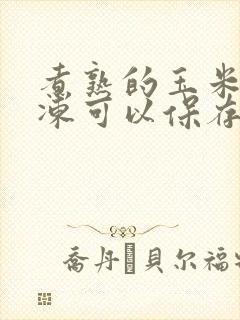 煮熟的玉米
冻可以保存
乔丹·贝尔福